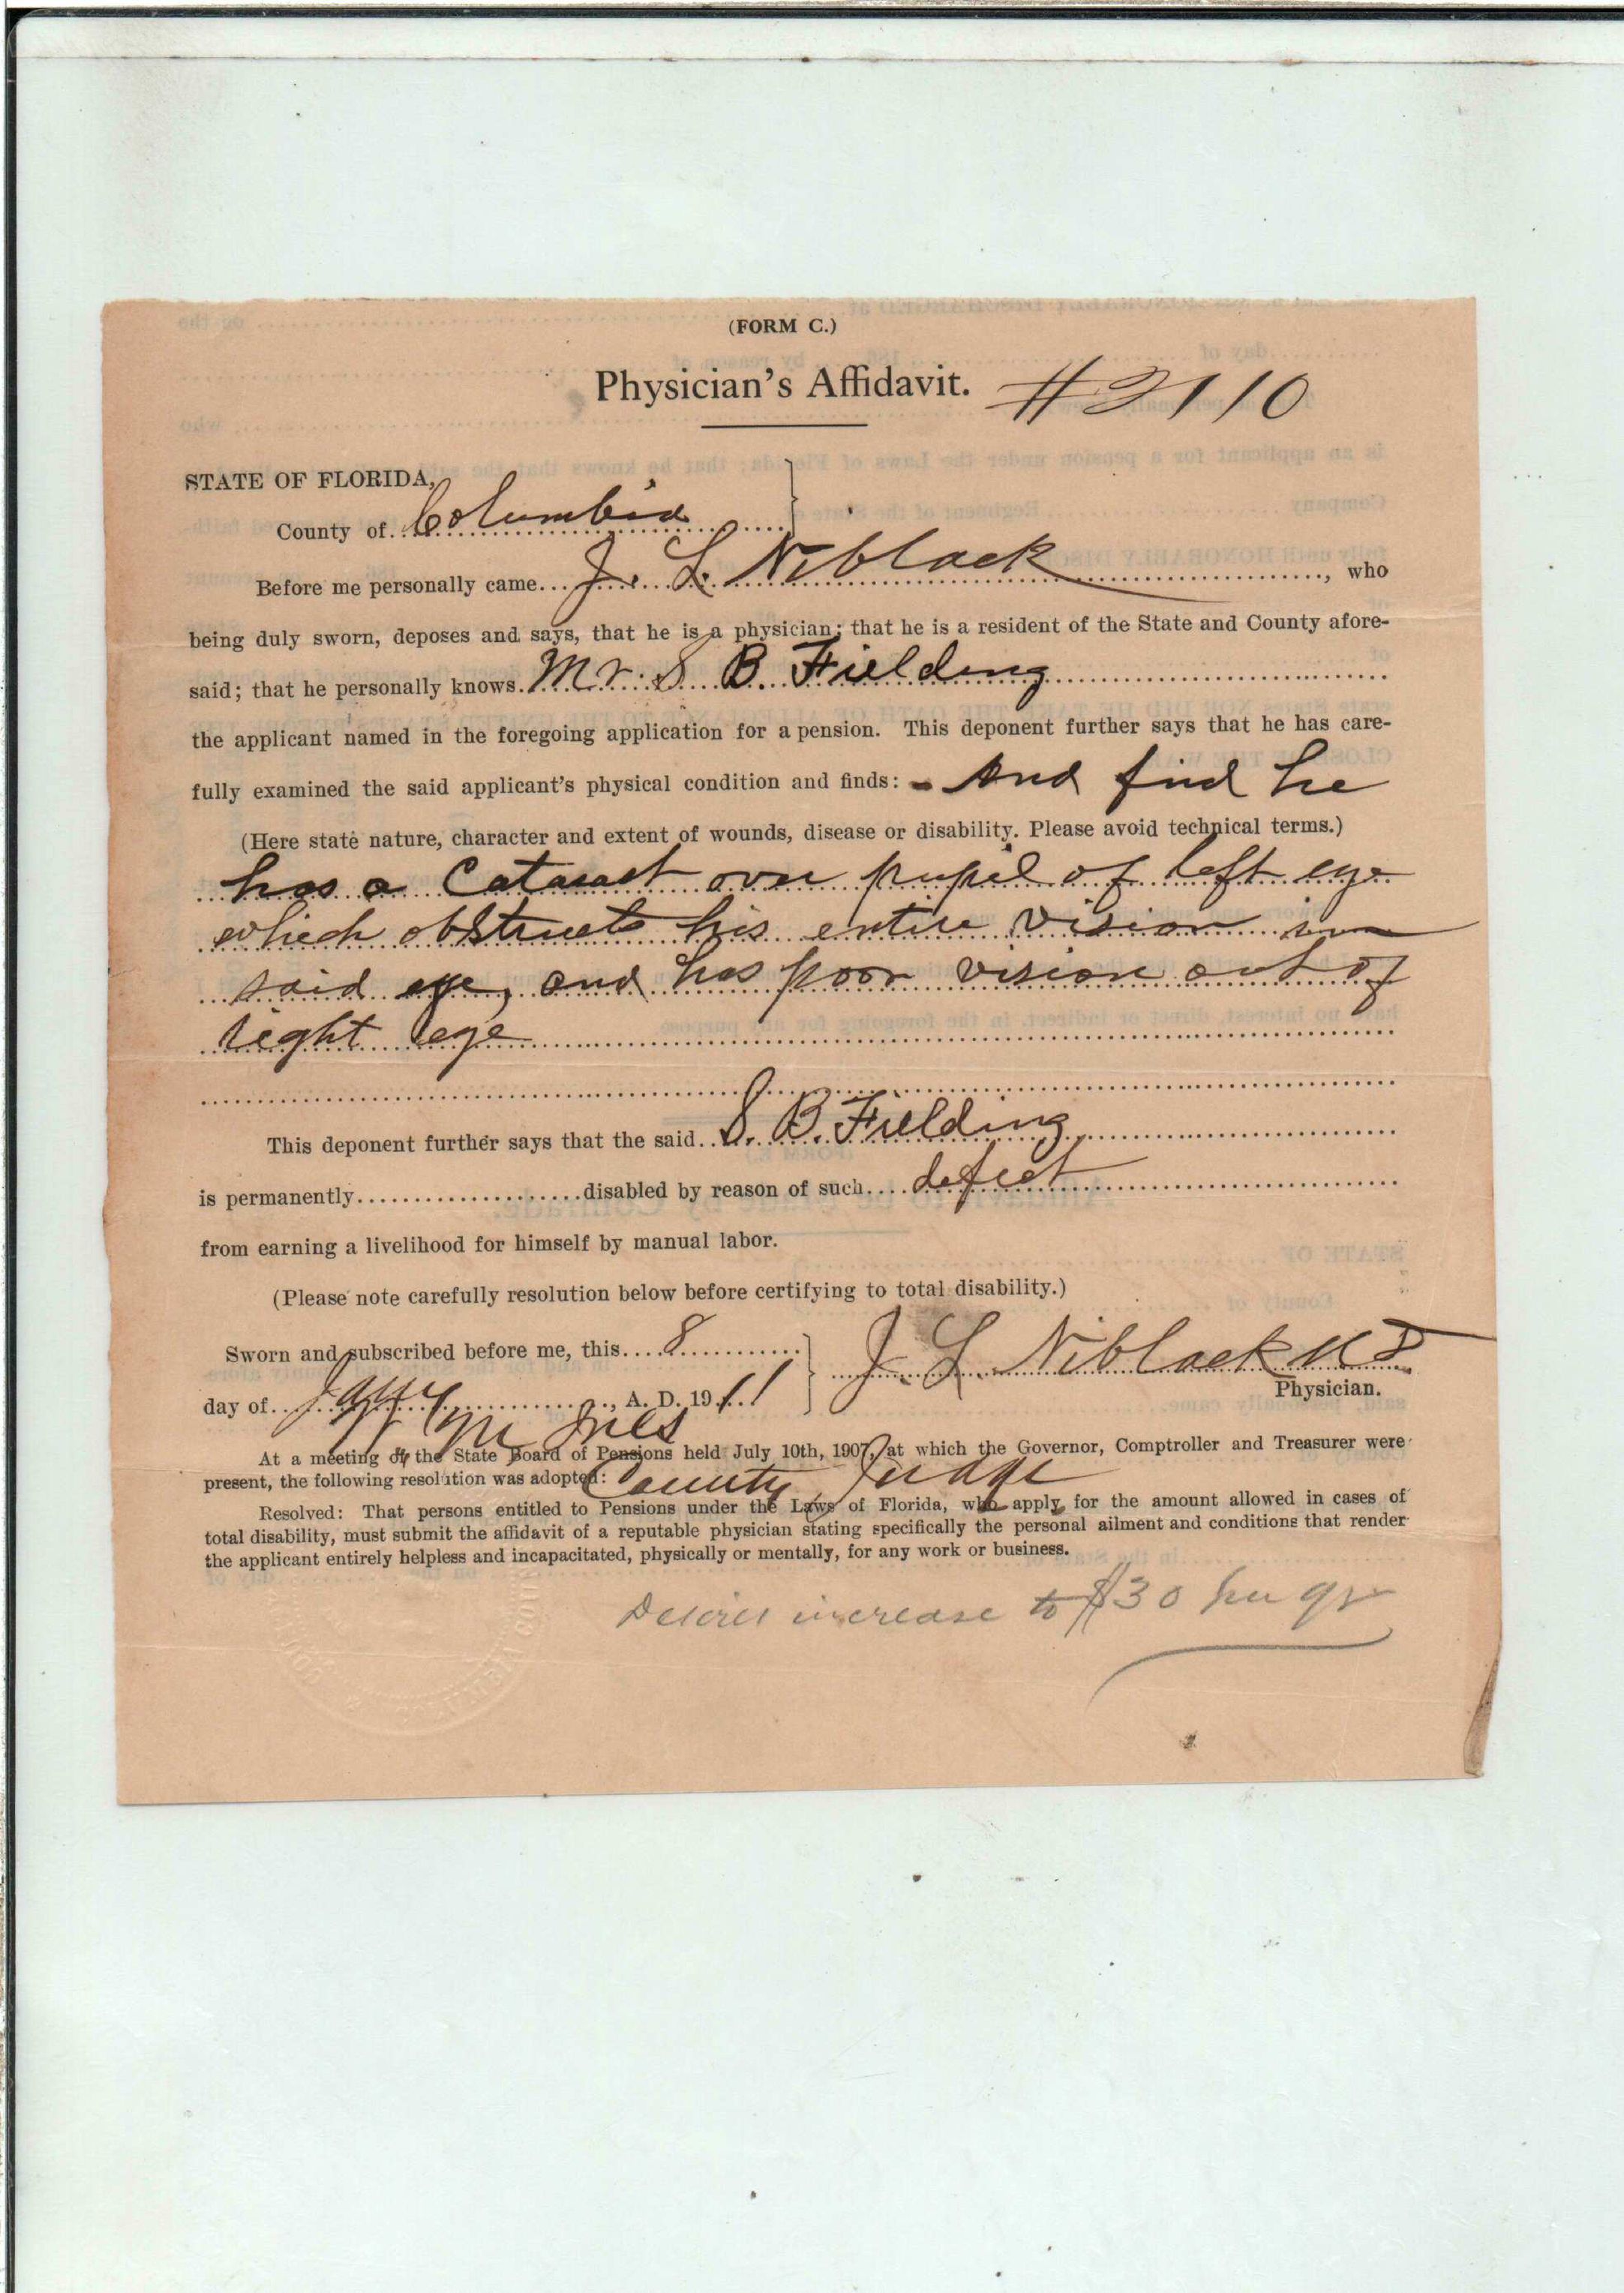 (FORM C.)
Physician's Affidavit. #2110
STATE OF FLORIDA,
County of Columbia
Before me personally came J. L. Niblack, who
being duly sworn, deposes and says, that he is a physician; that he is a resident of the State and County afore-
said; that he personally knows Mr. S B. Fielding
the applicant named in the foregoing application for a pension. This deponent further says that he has care-
fully examined the said applicant's physical condition and finds:- And find he
(Here state nature, character and extent of wounds, disease or disability. Please avoid technical terms.)
has a Cataract over pupil of left eye
which obstructs his entire vision in
said eye, and has poor vision out of
right eye
This deponent further says that the said S. B. Fielding
is permanently disabled by reason of such defect
from earning a livelihood for himself by manual labor.
(Please note carefully resolution below before certifying to total disability.)
Sworn and subscribed before me, this 8
J. L. Niblack M D
Physician.
day of Jany, A. D. 1911
W M Ives
At a meeting of the State Board of Pensions held July 10th, 1907, at which the Governor, Comptroller and Treasurer were
present, the following resolution was adopted:
County Judge
Resolved: That persons entitled to Pensions under the Laws of Florida, who apply for the amount allowed in cases of
total disability, must submit the affidavit of a reputable physician stating specifically the personal ailment and conditions that render
the applicant entirely helpless and incapacitated, physically or mentally, for any work or business.
Desires increase to $30 per qr